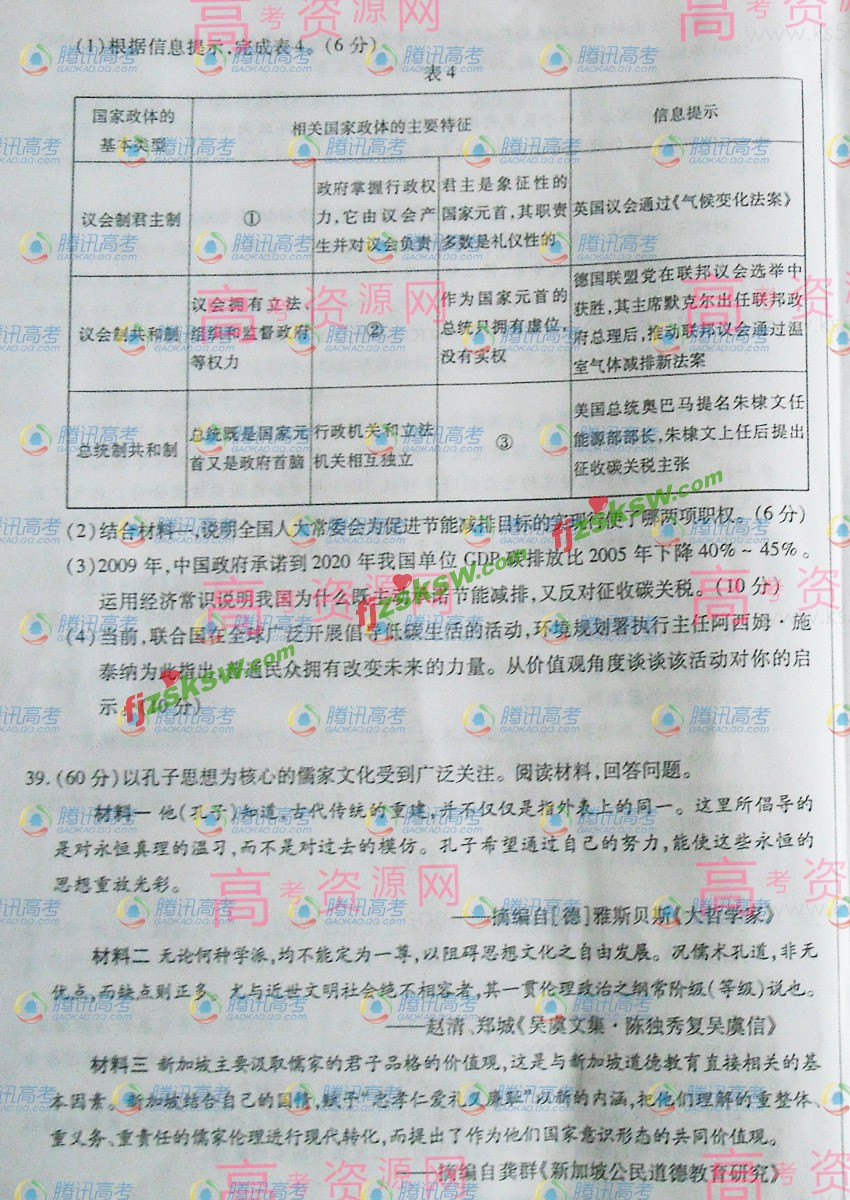 (1)根据信息提示,完成表4。(6分)
表4
国家政体的
基本类型
相关国家政体的主要特征
信息提示
议会制君主制
①
政府掌握行政权
力,它由议会产
生并对议会负责
君主是象征性的
国家元首,其职责
多数是礼仪性的
英国议会通过《气候变化法案》
议会制共和制
议会拥有立法、
组织和监督政府
等权力
②
作为国家元首的
总统只拥有虚位,
没有实权
德国联盟党在联邦议会选举中
获胜,其主席默克尔出任联邦政
府总理后,推动联邦议会通过温
室气体减排新法案
总统制共和制
总统既是国家元
首又是政府首脑
行政机关和立法
机关相互独立
③
美国总统奥巴马提名朱棣文任
能源部部长,朱棣文上任后提出
征收碳关税主张
(2)结合材料一,说明全国人大常委会为促进节能减排目标的实现行使了哪两项职权。(6分)
(3)2009年,中国政府承诺到2020年我国单位GDP碳排放比2005年下降40%~45%。
运用经济常识说明我国为什么既主动承诺节能减排,又反对征收碳关税。(10分)
(4)当前,联合国在全球广泛开展倡导低碳生活的活动,环境规划署执行主任阿西姆·施
泰纳为此指出,普通民众拥有改变未来的力量。从价值观角度谈谈该活动对你的启
示。(10分)
39.(60分)以孔子思想为核心的儒家文化受到广泛关注。阅读材料,回答问题。
材料一 他(孔子)知道,古代传统的重建,并不仅仅是指外表上的同一。这里所倡导的
是对永恒真理的温习,而不是对过去的模仿。孔子希望通过自己的努力,能使这些永恒的
思想重放光彩。
——摘编自[德]雅斯贝斯《大哲学家》
材料二 无论何种学派,均不能定为一尊,以阻碍思想文化之自由发展。况儒术孔道,非无
优点,而缺点则正多。尤与近世文明社会绝不相容者,其一贯伦理政治之纲常阶级(等级)说也。
——赵清、郑城《吴虞文集·陈独秀复吴虞信》
材料三 新加坡主要汲取儒家的君子品格的价值观,这是与新加坡道德教育直接相关的基
本因素。新加坡结合自己的国情,赋予“忠孝仁爱礼义廉耻”以新的内涵,把他们理解的重整体、
重义务、重责任的儒家伦理进行现代转化,而提出了作为他们国家意识形态的共同价值观。
——摘编自龚群《新加坡公民道德教育研究》
高考资源网
www.ks5
腾讯高考
GAOKAO.QQ.COM
fjzsksw.com